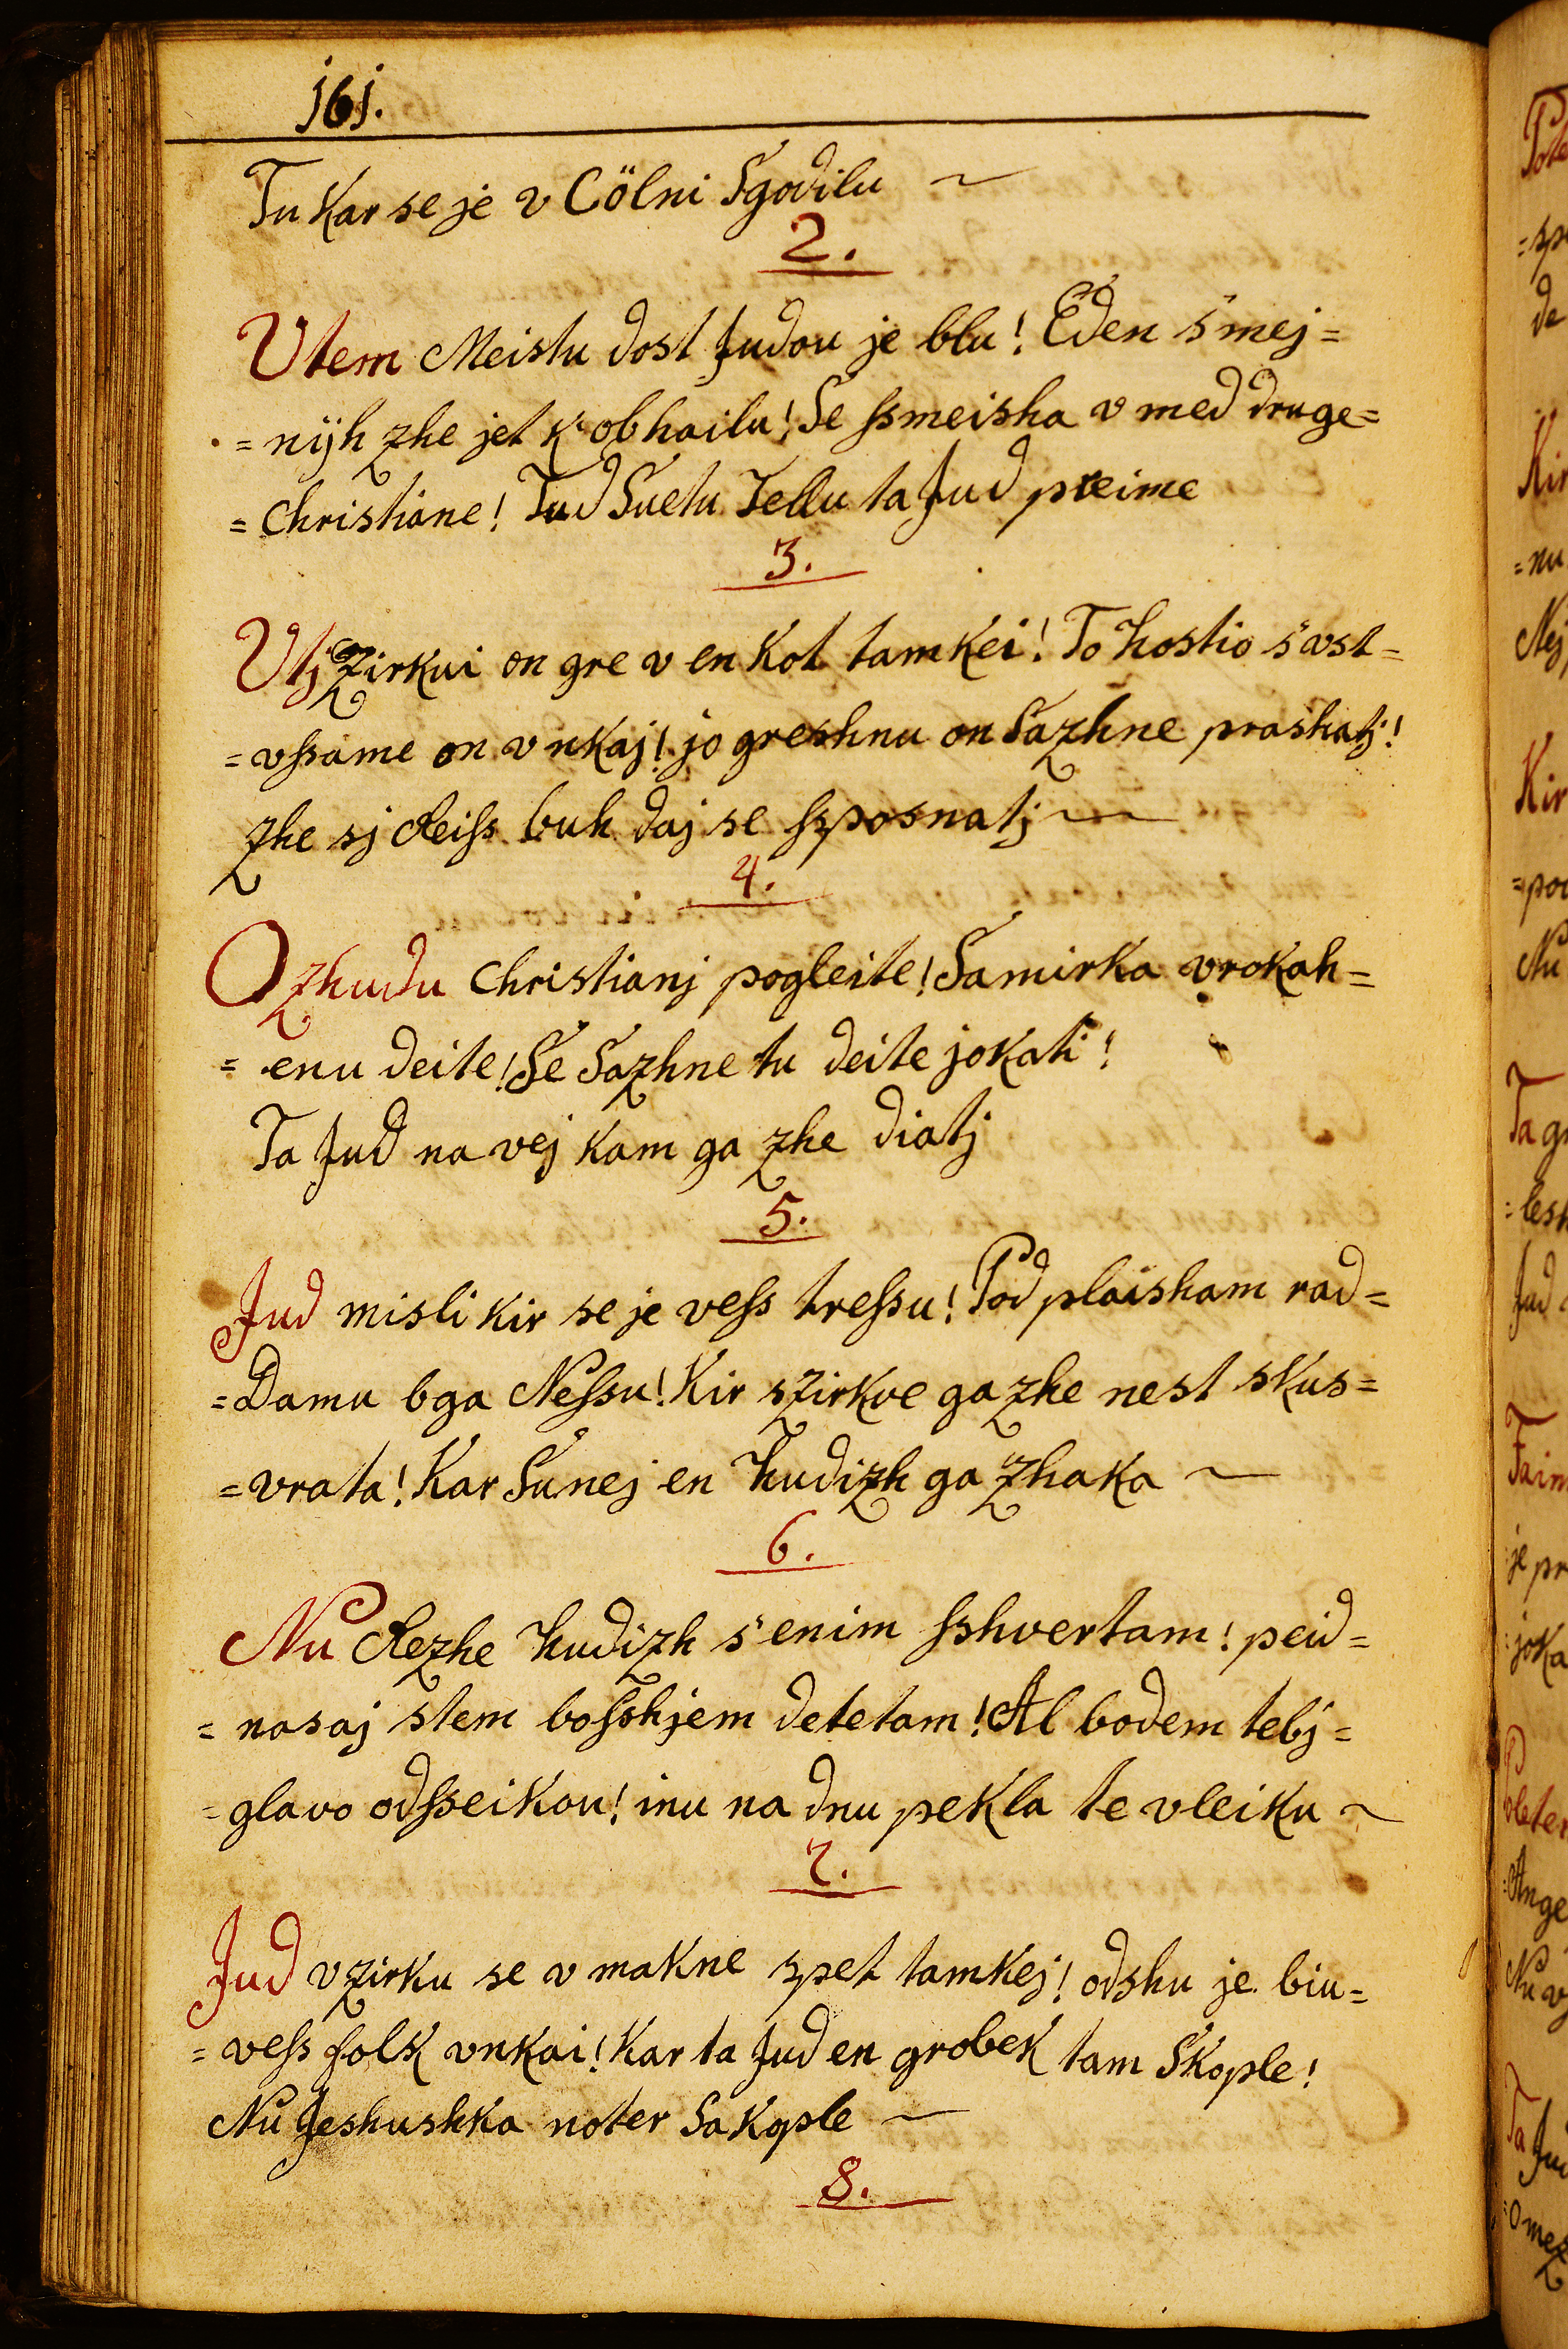 161.
Tu Kar se je v Cölni Sgodilu
2.
Utem Meistu dost Judou je blu! Eden s'mej=
= nijh zhe jet k'obhailu! Se ſsmeisha v med druge=
= Christiane! Tud Suetu Tellu ta Jud preime
3.
Utj Zirkui on gre v en Kot tamkei! To Hostio s'vst=
= vſsame on vnkaj! jo greshnu on Sazhne prashatj!
Zhe sj Reiſs buh daj se ſsposnatj
4.
O Zhudu Christianj pogleite! Samirka v rokah=
= enu deite! Se Sazhne tu deite jokati!
Ta Jud na vej kam ga zhe diatj
5.
Jud misli kir se je veſs treſsu! Pod plaisham rad=
= Damu bga Neſsu! Kir szirkve ga zhe nest skus=
= vrata! Kar Sunej en Hudizh ga Zhaka
6.
Nu Rezhe Hudizh s'enim ſshvertam! peid=
= nasaj stem boſshjem detetam! Al bodem tebj=
= glavo odſseikou! inu na dnu pekla te vleiku
7.
Jud v zirku se v makne spet tamkej! odshu je biu=
= veſs folk vnkai! Kar ta Jud en grobek tam Skople!
Nu Jeshushka noter Sakople
8.